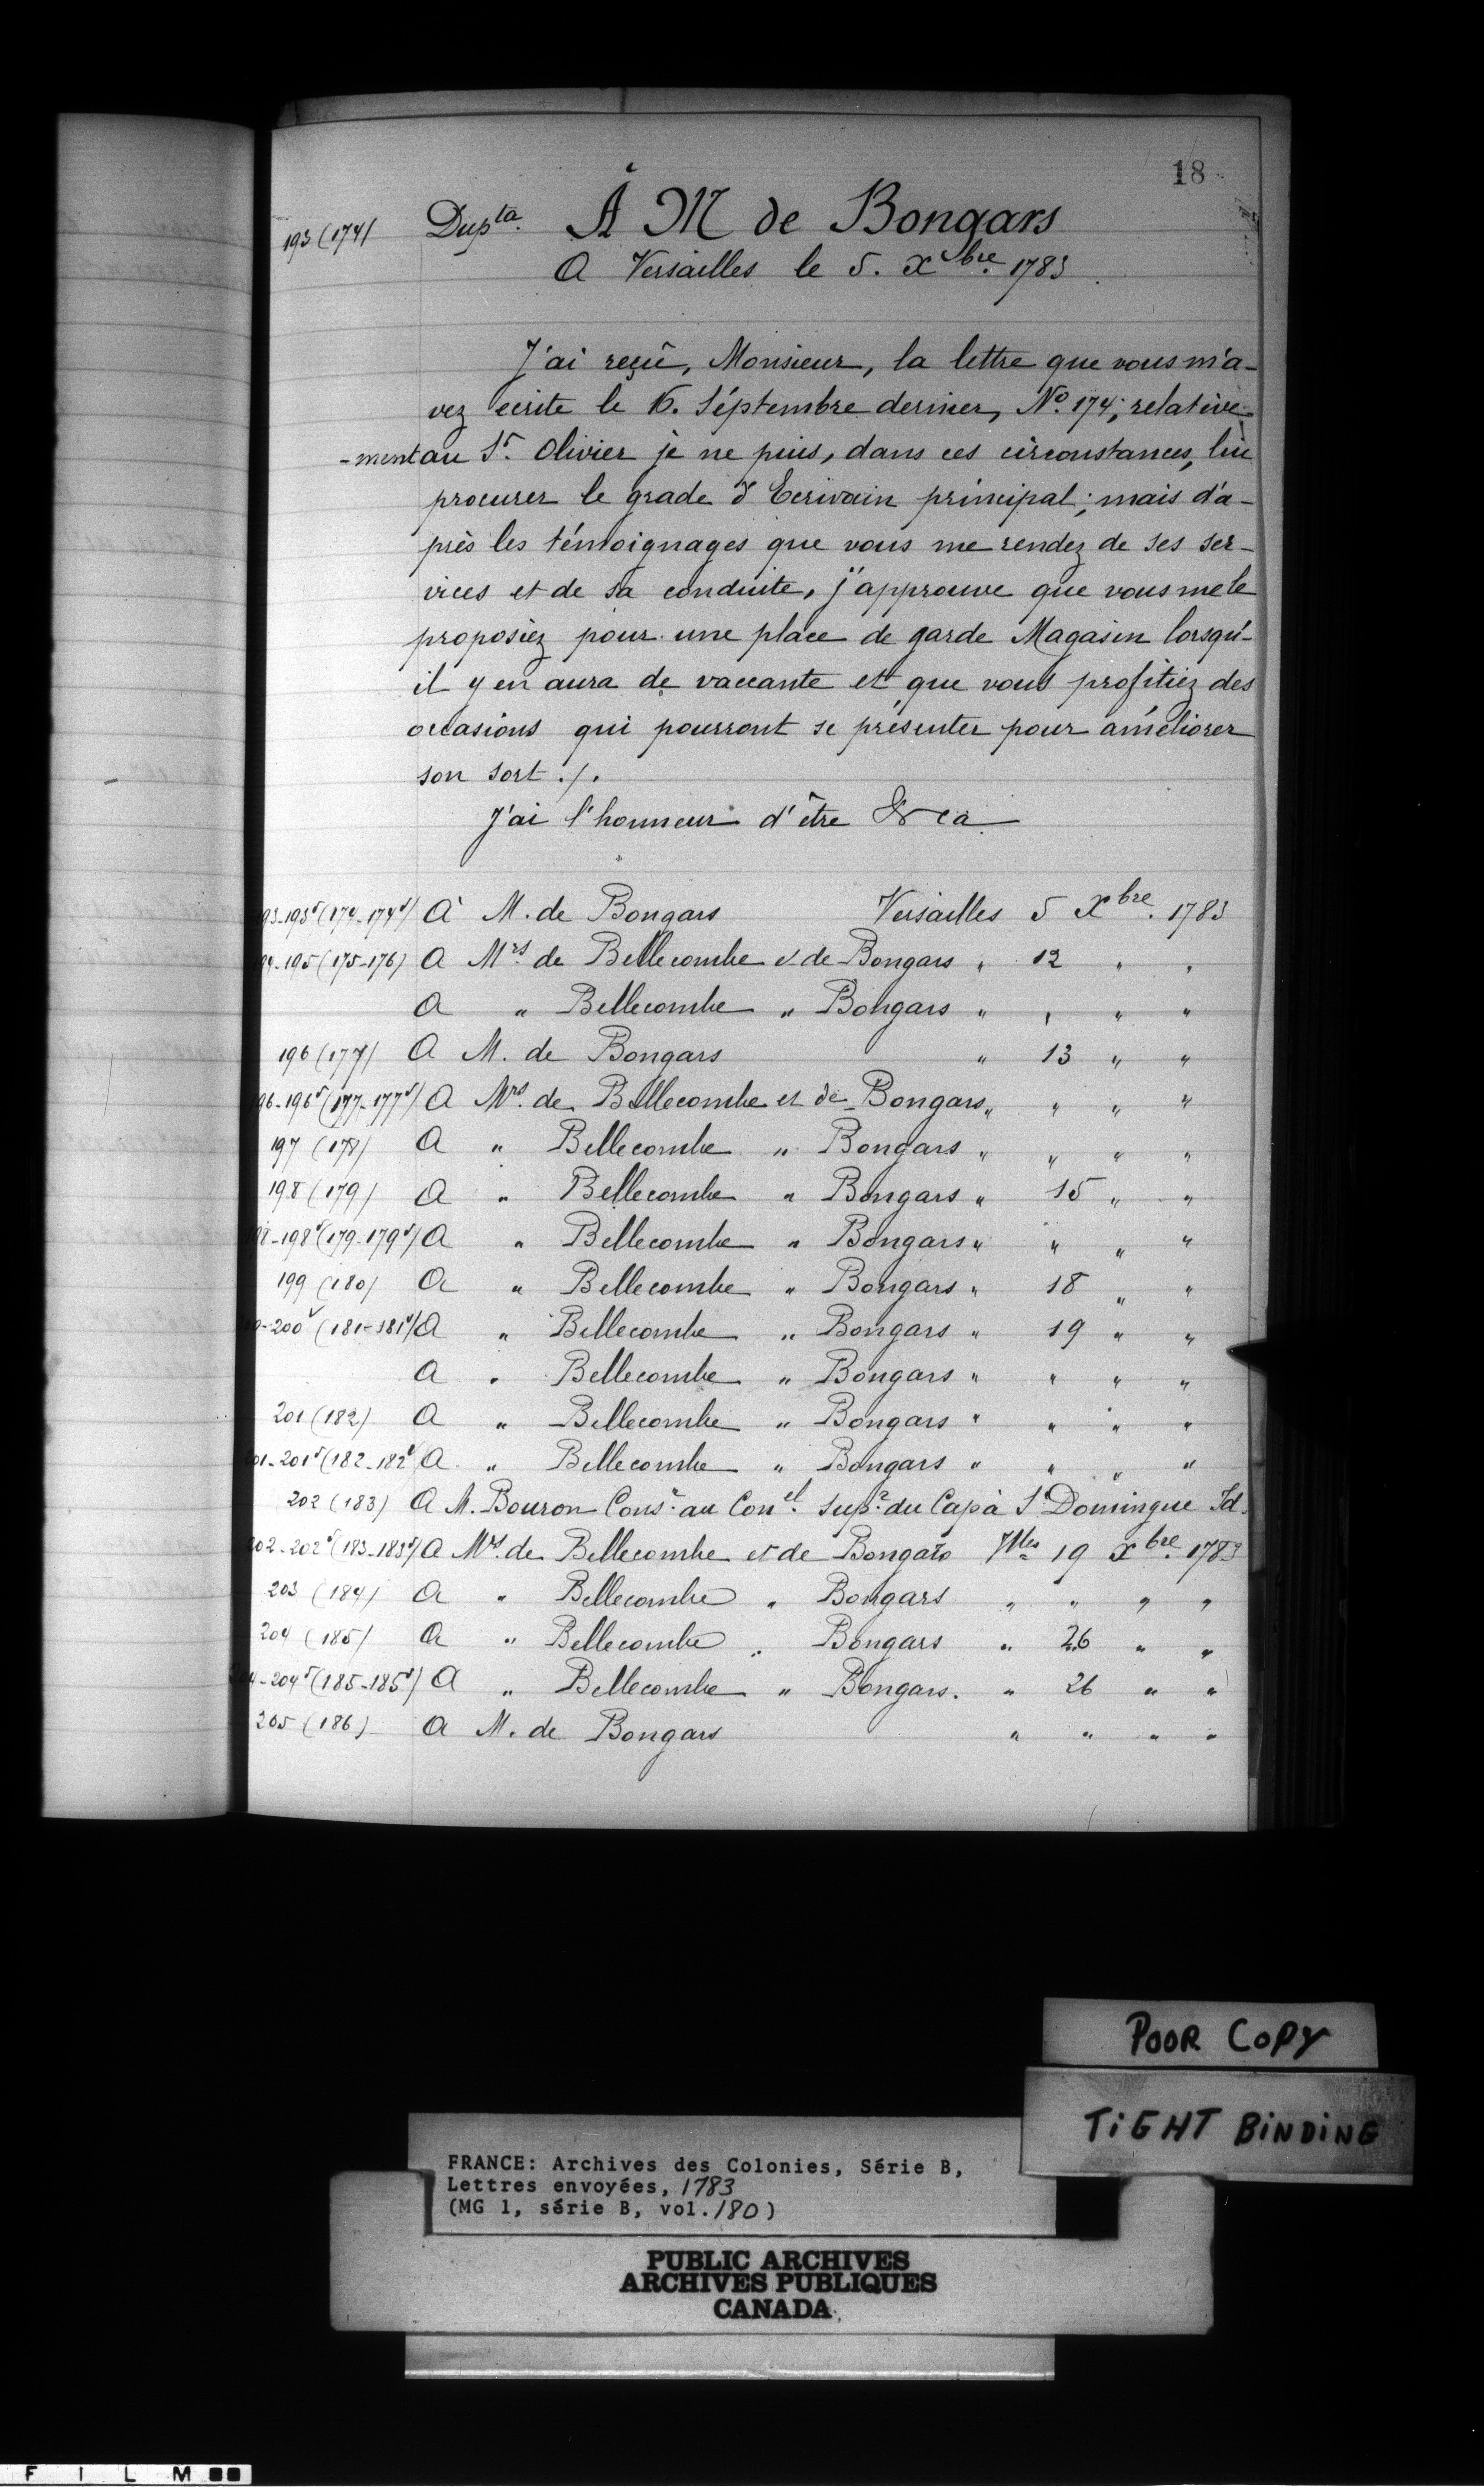 18
193 (174) Dup^ta. À M de Bongars
A Versailles le 5. X^bre. 1783.
J'ai reçû, Monsieur, la lettre que vous m'a-
vez écrite le 16. Séptembre dernier, N.° 174, relative-
-ment au S^r. Olivier je ne puis, dans ces circonstances, lui
procurer le grade d'Ecrivain principal; mais d'a-
près les témoignages que vous me rendez de ses ser-
vices et de sa conduite, j'approuve que vous me le
proposiez pour une place de garde Magasin lorsqu'-
il y en aura de vaccante et que vous profitiez des
occasions qui pourront se présenter pour améliorer
son sort ./.
J'ai l'honneur d'être & ca
193-193^v (174-174^v) A M. de Bongars Versailles 5 X^bre. 1783
194-195 (175-176) A M^rs. de Bellecombe & de Bongars " 12 " "
A " Bellecombe " Bongars " " " "
196 (177) A M. de Bongars " 13 " "
196-196^v (177-177^v) A M^rs. de Bellecombe et de Bongars " " " "
197 (178) A " Bellecombe " Bongars " " " "
198 (179) A " Bellecombe " Bongars " 15 " "
198-198^v (179-179^v) A " Bellecombe " Bongars " " " "
199 (180) A " Bellecombe " Bongars " 18 " "
200-200^v (181-181^v) A " Bellecombe " Bongars " 19 " "
A " Bellecombe " Bongars " " " "
201 (182) A " Bellecombe " Bongars " " " "
201-201^v (182-182^v) A " Bellecombe " Bongars " " " "
202 (183) A M. Bouron Cons^r. au Con^el. Sup^r. du Cap à S^t Domingue Id.
202-202^v (183-183^v) A M^rs. de Bellecombe et de Bongars V^lles 19 X^bre. 1783
203 (184) A " Bellecombe " Bongars " " " "
204 (185) A " Bellecombe " Bongars " 26 " "
204-204^v (185-185^v) A " Bellecombe " Bongars. " 26 " "
205 (186) A M. de Bongars " " " "
POOR COPY
TIGHT BINDING
FRANCE: Archives des Colonies, Série B,
Lettres envoyées, 1783
(MG 1, série B, vol. 180)
PUBLIC ARCHIVES
ARCHIVES PUBLIQUES
CANADA
FILM